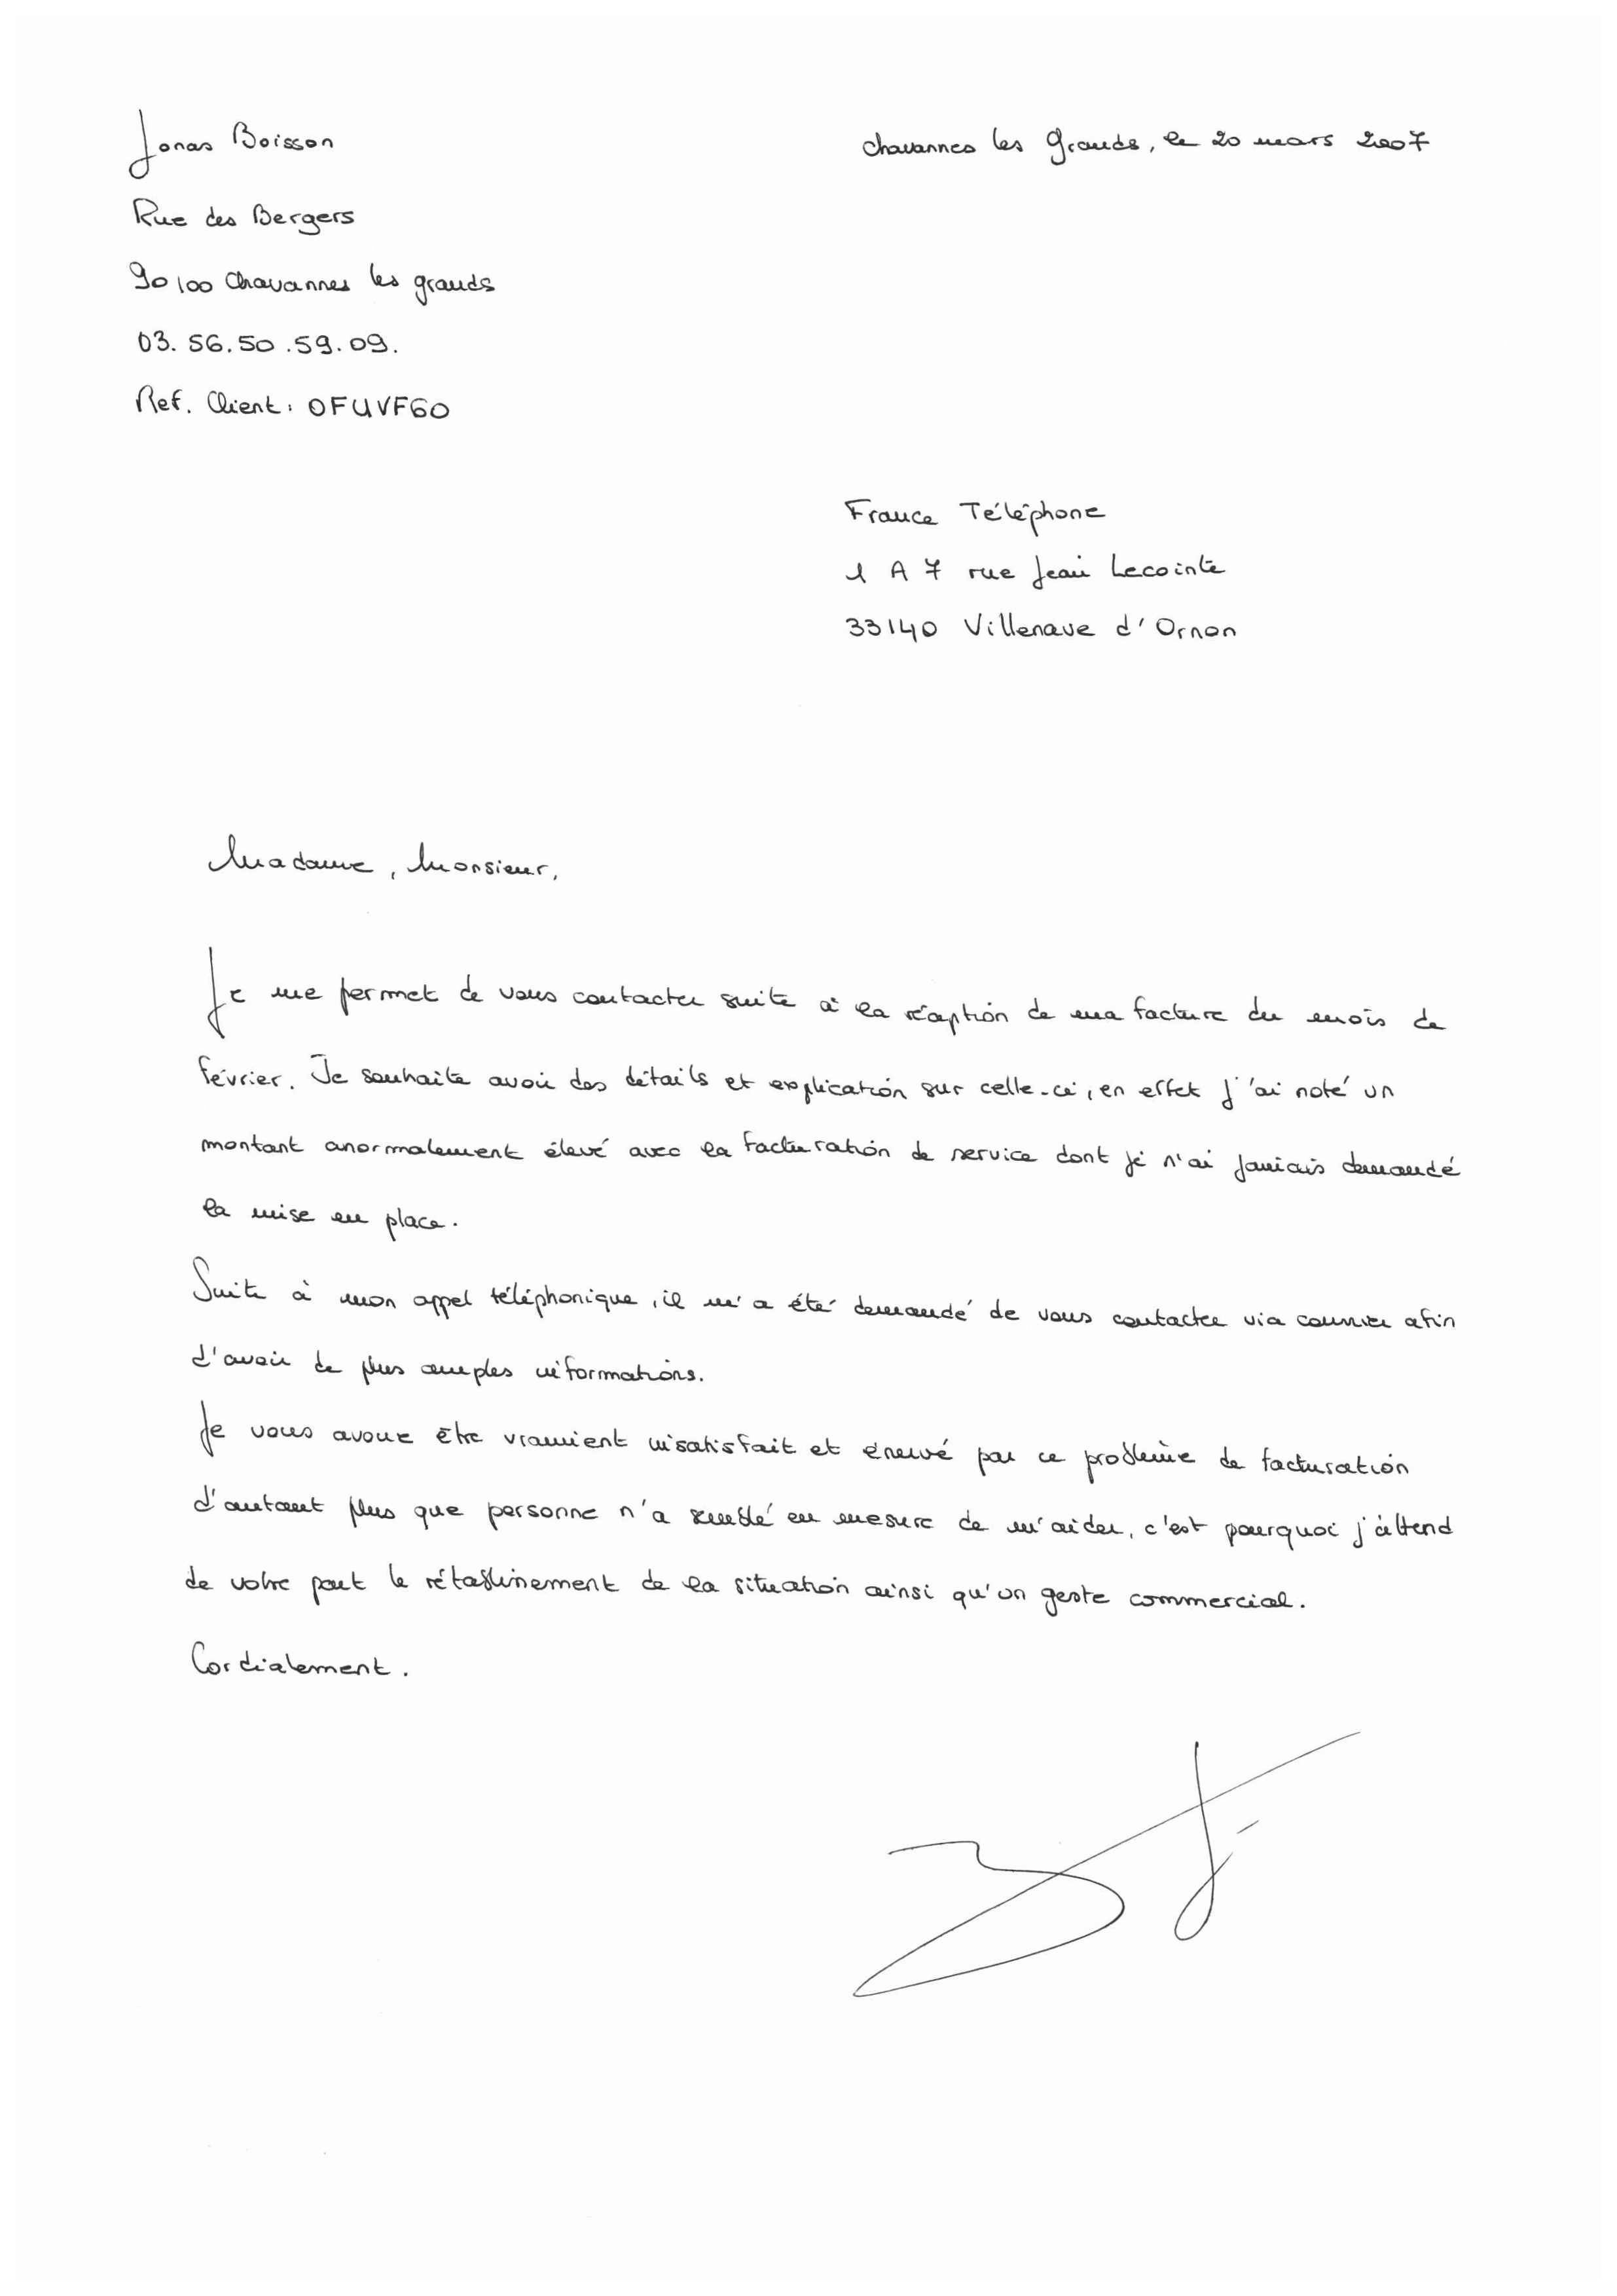 Jonas Boisson
Chavannes les Grands, le 20 mars 2007
Rue des Bergers
90100 Chavannes les grands
03.56.50.59.09.
Ref. Client : OFUVF60
France Téléphone
1 A 7 rue Jean Lecointe
33140 Villenave d'Ornon
Madame, Monsieur,
Je me permet de vous contacter suite à la réception de ma facture du mois de
février. Je souhaite avoir des détails et explication sur celle-ci, en effet j'ai noté un
montant anormalement élevé avec la facturation de service dont je n'ai jamais demandé
la mise en place.
Suite à mon appel téléphonique, il m'a été demandé de vous contacter via courrier afin
d'avoir de plus amples informations.
Je vous avoue être vraiment insatisfait et énervé par ce problème de facturation
d'autant plus que personne n'a semblé en mesure de m'aider, c'est pourquoi j'attend
de votre part le rétablissement de la situation ainsi qu'un geste commercial.
Cordialement.